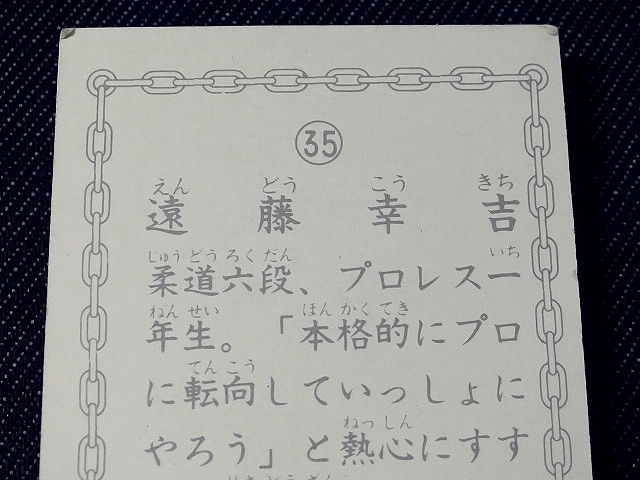 ㉟
えん どう こう きち
遠藤幸吉
じゅう どう ろく だん いち
柔道六段、プロレス一
ねん せい ほん かく てき
年生。「本格的にプロ
てん こう
に転向していっしょに
ねっ しん
やろう」と熱心にすす